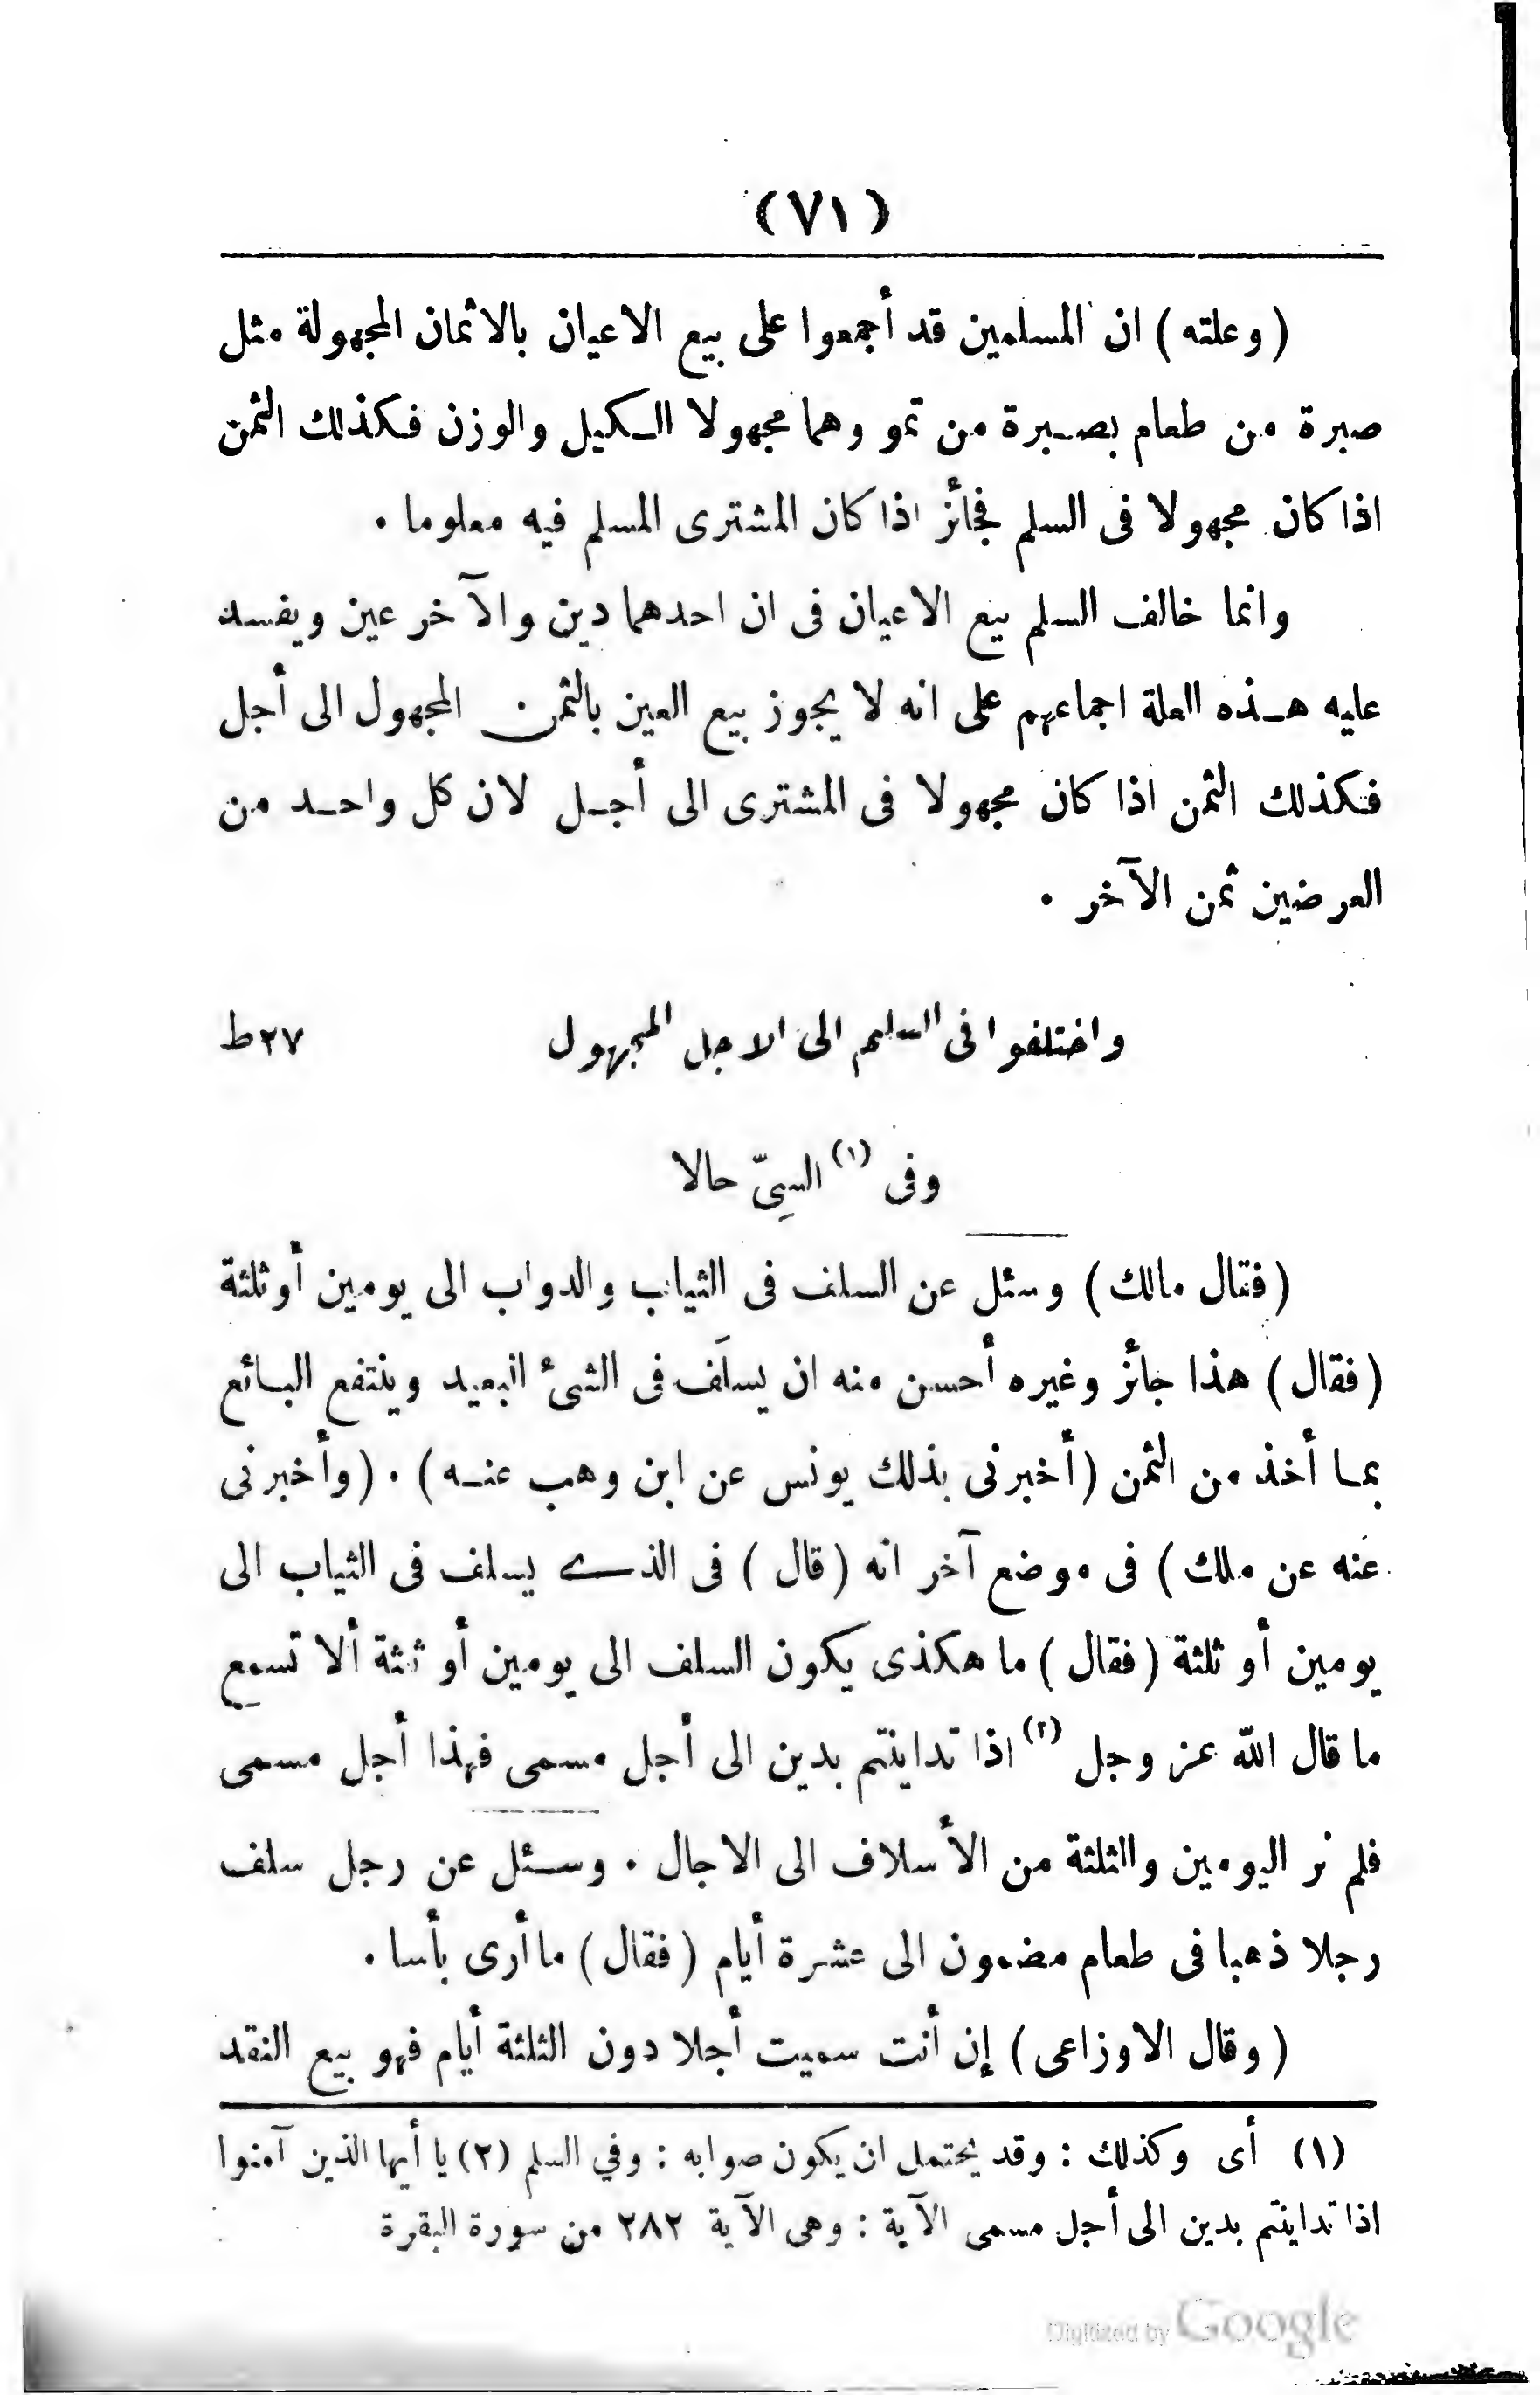 (٧١)
(وعلته) ان المسلمين قد أجمعوا على بيع الاعيان بالاثمان المجهولة مثل
صبرة من طعام بصبرة من تمر وهما مجهولا الكيل والوزن فكذلك الثمن
اذا كان مجهولا فى السلم فجائز اذا كان المشترى المسلم فيه معلوما .
وانما خالف السلم بيع الاعيان فى ان احدهما دين والآخر عين ويفسد
عليه هذه العلة اجماعهم على انه لا يجوز بيع العين بالثمن المجهول الى أجل
فكذلك الثمن اذا كان مجهولا فى المشترى الى أجل لان كل واحد من
العرضين ثمن الآخر .
واختلفوا فى السلم الى الاجل المجهول ٢٧ط
وفى (١) السِىّ حالا
(فقال مالك) وسئل عن السلف فى الثياب والدواب الى يومين أو ثلثة
(فقال) هذا جائز وغيره أحسن منه ان يسلَف فى الشئ البعيد وينتفع البائع
بما أخذ من الثمن (أخبرنى بذلك يونس عن ابن وهب عنه) . (وأخبرنى
عنه عن ملك) فى موضع آخر انه (قال) فى الذى يسلف فى الثياب الى
يومين أو ثلثة (فقال) ما هكذى يكون السلف الى يومين أو ثلثة ألا تسمع
ما قال الله عز وجل (٢) اذا تداينتم بدين الى أجل مسمى فهذا أجل مسمى
فلم نر اليومين والثلثة من الأسلاف الى الاجال . وسئل عن رجل سلف
رجلا ذهبا فى طعام مضمون الى عشرة أيام (فقال) ما أرى بأسا .
(وقال الاوزاعى) إن أنت سميت أجلا دون الثلثة أيام فهو بيع النقد
(١) أى وكذلك : وقد يحتمل ان يكون صوابه : وفي السلم (٢) يا أيها الذين آمنوا
اذا تداينتم بدين الى أجل مسمى الآية : وهى الآية ٢٨٢ من سورة البقرة
Digitized by Google